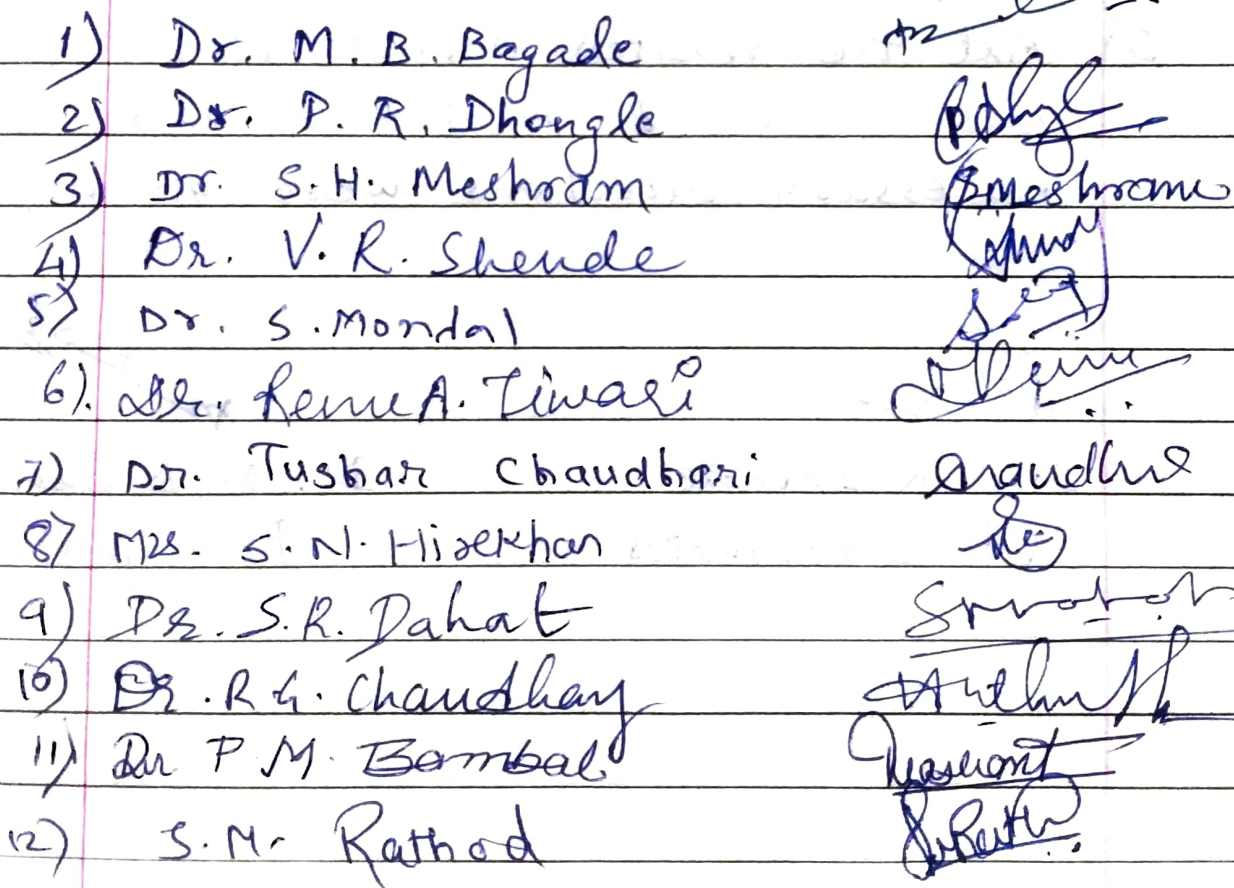 1) Dr. M. B. Bagade
2) Dr. P. R. Dhongle
3) Dr. S. H. Meshram Smeshram
4) Dr. V. R. Shende
5) Dr. S. Mondal
6). Dr. Renu A. Tiwari
7) Dr. Tushar Chaudhari
8) Mrs. S. N. Hirekhan
9) Dr. S. R. Dahat
10) Dr. R. G. Chaudhay
11) Dr P. M. Bombal
12) S. M. Rathod